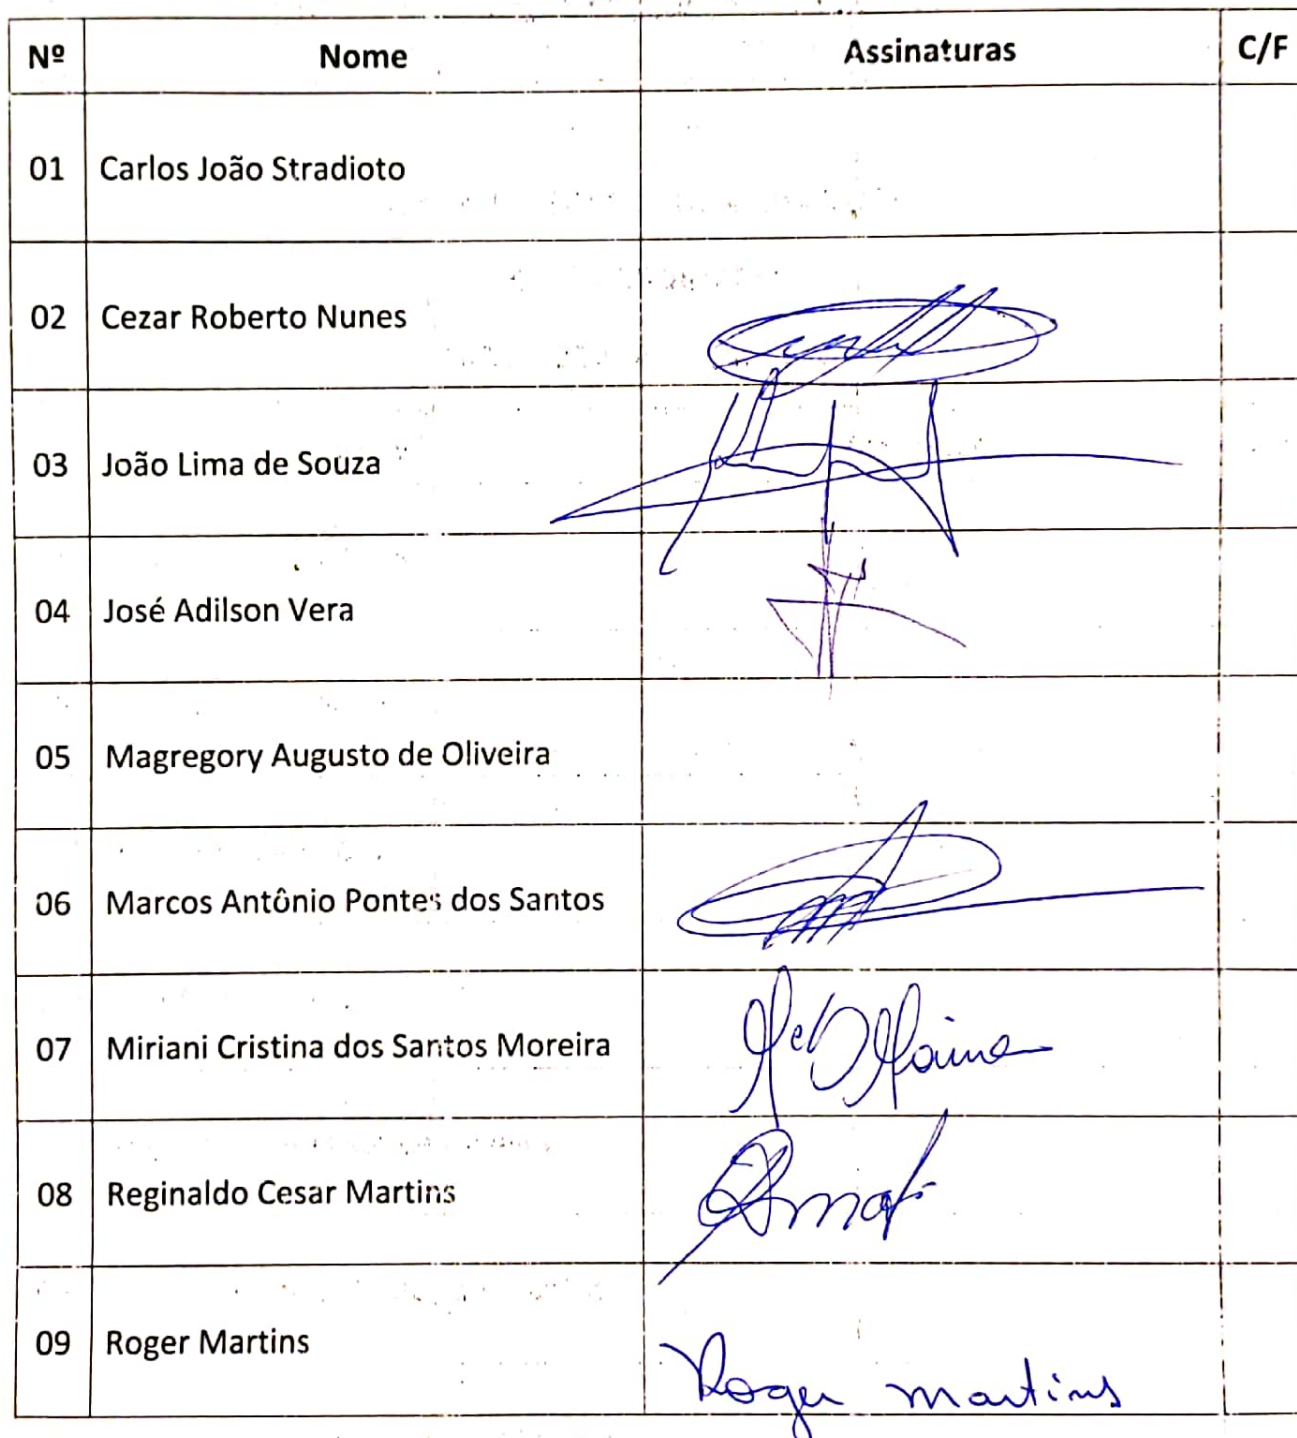 Nº Nome Assinaturas C/F
01 Carlos João Stradioto
02 Cezar Roberto Nunes
03 João Lima de Souza
04 José Adilson Vera
05 Magregory Augusto de Oliveira
06 Marcos Antônio Pontes dos Santos
07 Miriani Cristina dos Santos Moreira
08 Reginaldo Cesar Martins
09 Roger Martins Roger Martins